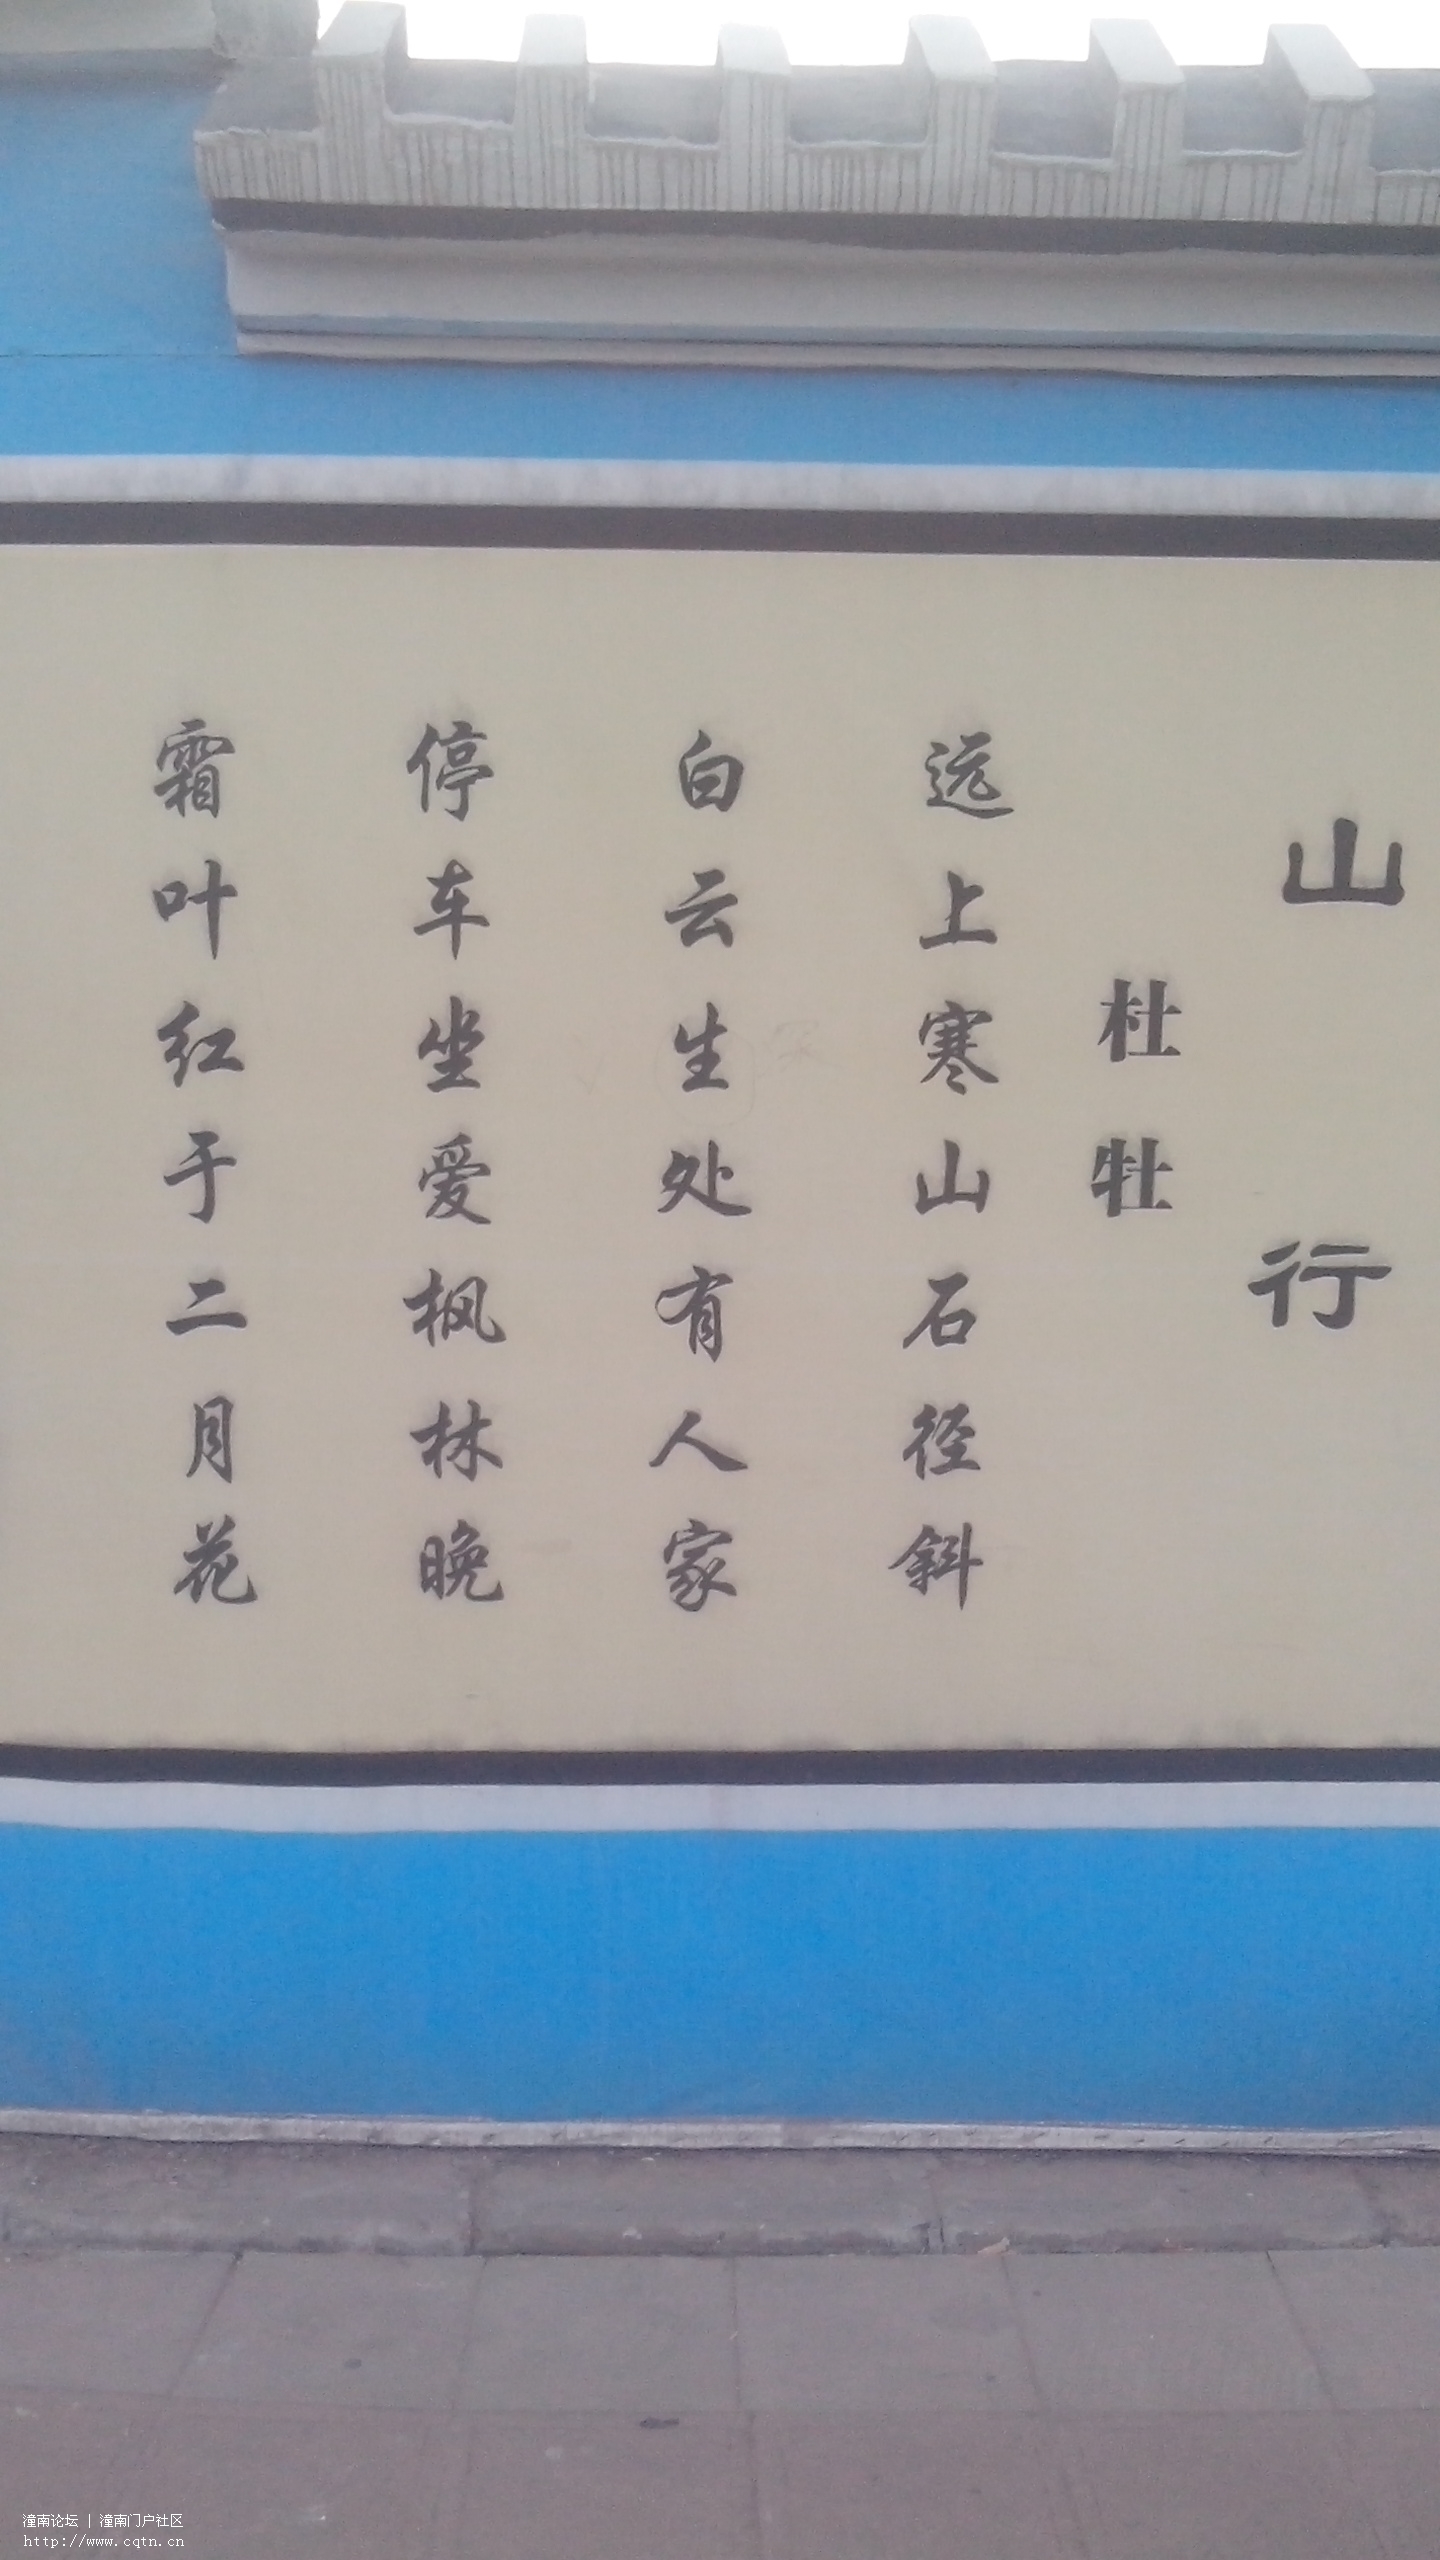 山行
杜牡
远上寒山石径斜
白云生处有人家
停车坐爱枫林晚
霜叶红于二月花
潼南论坛 | 潼南门户社区
http://www.cqtn.cn